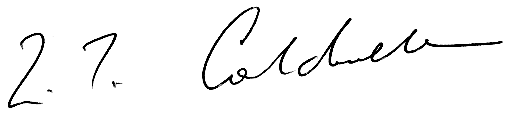 Z. T. Caldwell